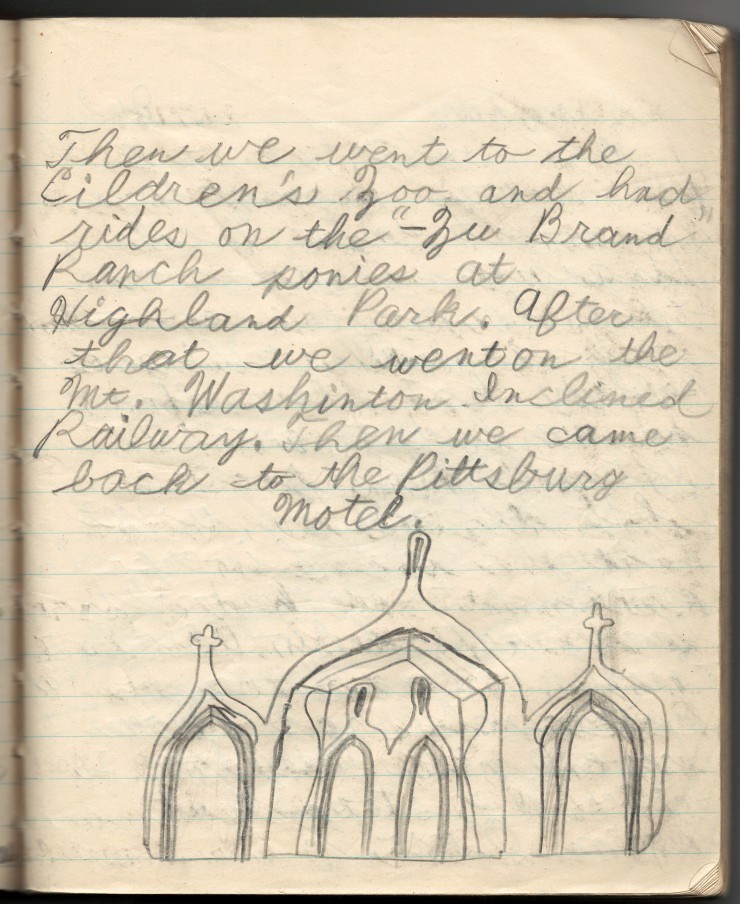 Then we went to the
Cildren's Zoo and had
rides on the "-Zu Brand"
Ranch ponies at
Highland Park. After
that we went on the
Mt. Washinton Inclined
Railway. Then we came
back to the Pittsburg
Motel.